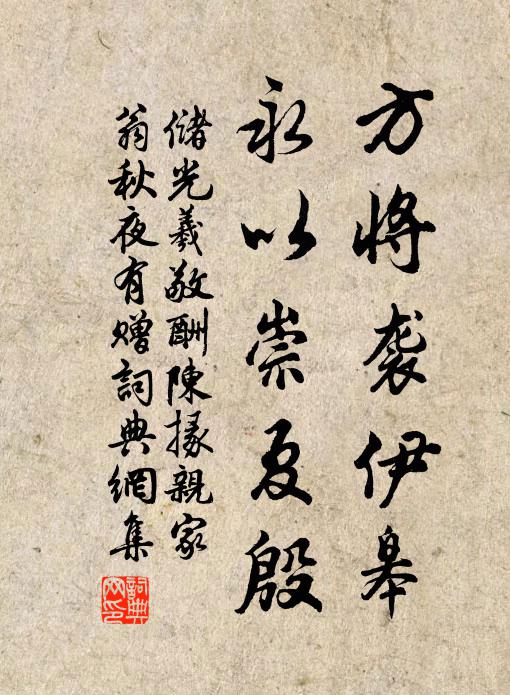 方将袭伊皋
永以崇夏殷
储光羲敬酬陳掾親家
翁秋夜有贈詞典網集
詞典
网印